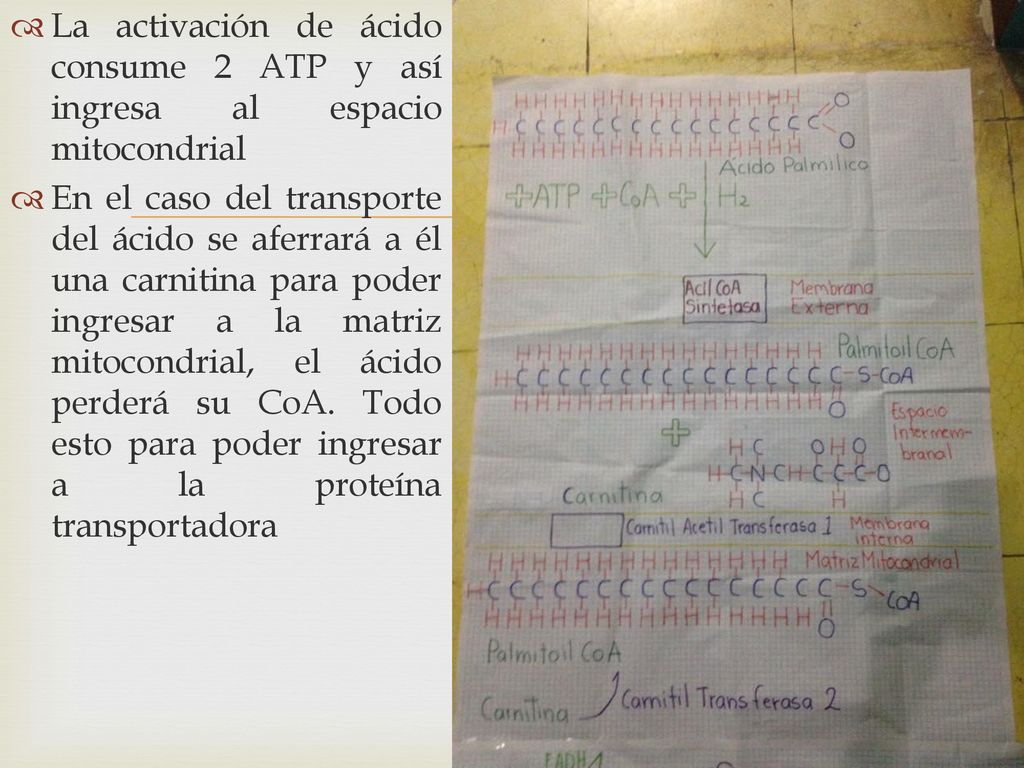 La activación de ácido
consume 2 ATP y así
ingresa al espacio
mitocondrial
En el caso del transporte
del ácido se aferrará a él
una carnitina para poder
ingresar a la matriz
mitocondrial, el ácido
perderá su CoA. Todo
esto para poder ingresar
a la proteína
transportadora
H H H H H H H H H H H H H H H
H C C C C C C C C C C C C C C C C O
H H H H H H H H H H H H H H H O
Ácido Palmilico
+ATP +CoA + H2
Acil CoA Membrana
Sintetasa Externa
Palmitoil CoA
H H H H H H H H H H H H H H H
H-C C C C C C C C C C C C C C C C-S-CoA
H H H H H H H H H H H H H H H O
Espacio
Intermem-
branal
+
H C O H O
H-C-N CH-C-C-C-O
H C H
Carnitina
Carnitil Acetil Transferasa 1
Membrana
Interna
Matriz Mitocondrial
H H H H H H H H H H H H H H H
H-C C C C C C C C C C C C C C C C-S CoA
H H H H H H H H H H H H H H H O
Palmitoil CoA
Carnitina Carnitil Transferasa 2
FADH